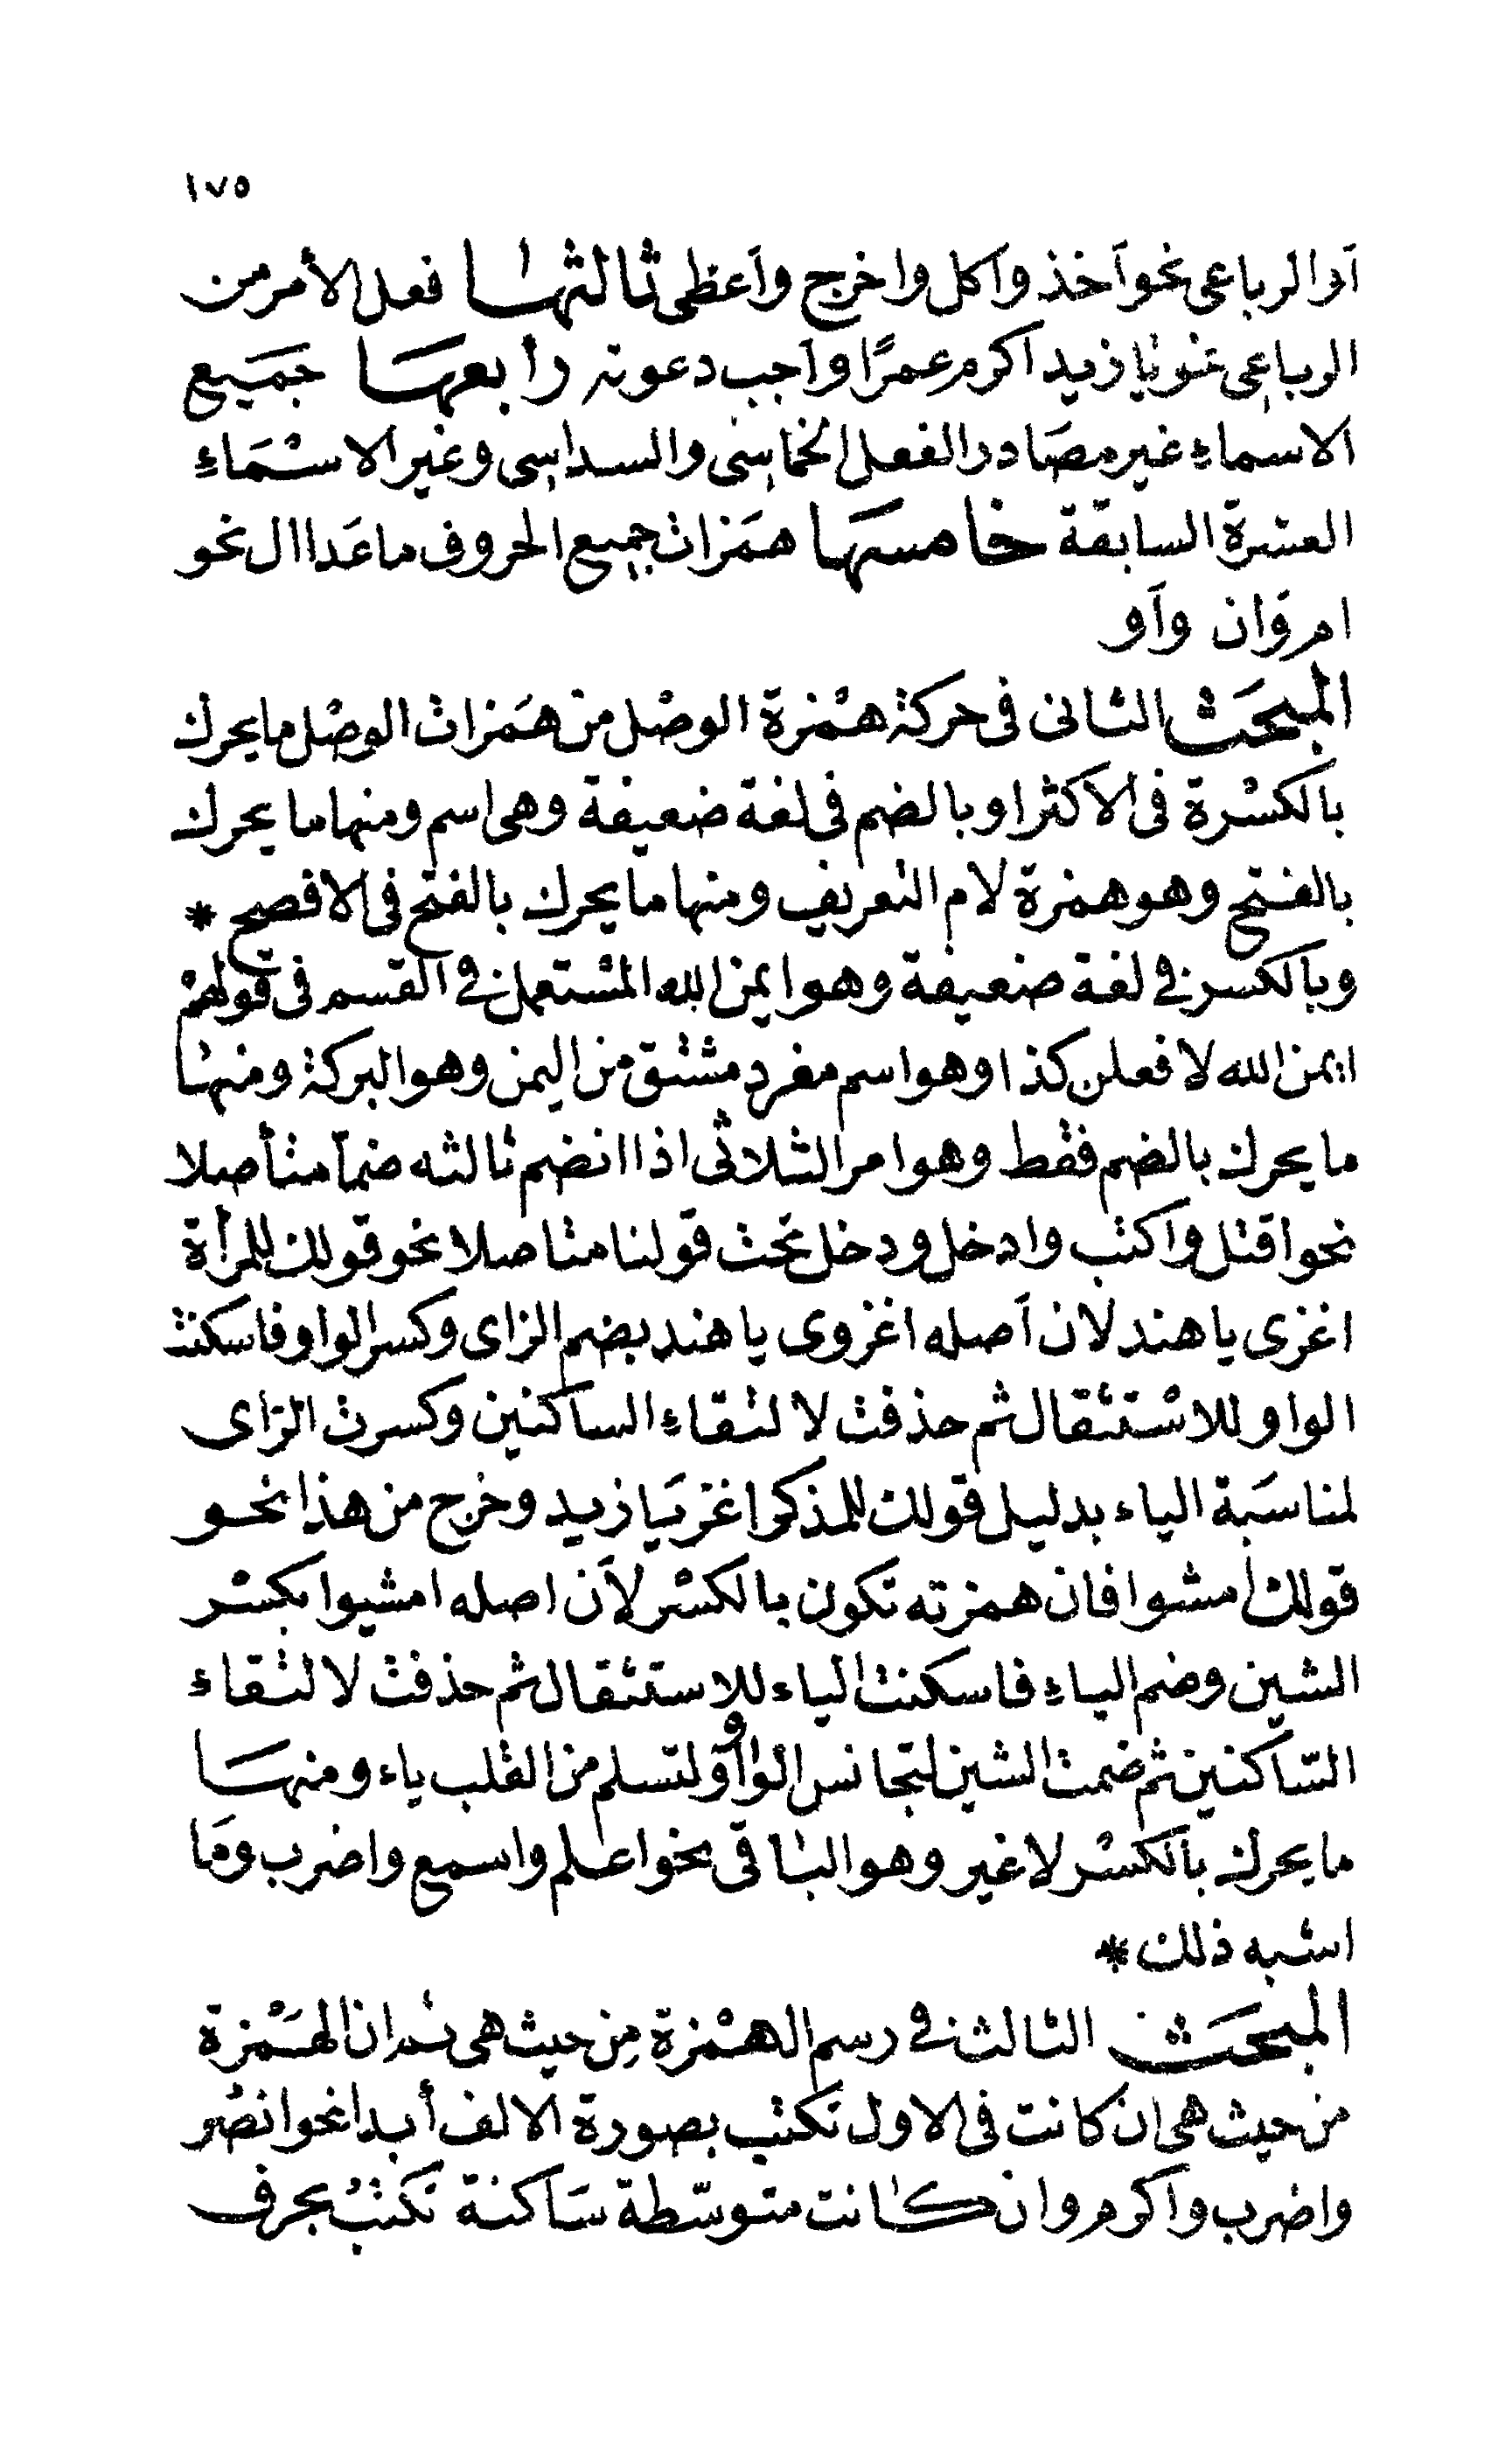 ١٧٥
أو الرباعى نحو أخذ وأكل واخرج وأعطى ثالثها فعل الأمر من
الرباعى نحو يا زيد اكرم عمرًا وأجب دعوته رابعها جَميع
الاسماءِ غير مصَادر الفعل الخماسى والسداسى وغير الاسْمَاءِ
العشرة السابقة خامسهَا همَزات جميع الحروف ماعَدا ال نحو
ام وَان وأو
المبحَث الثانى فى حركة همْزة الوصْل من همَزات الوصْل ما يحرك
بالكسْرة فى الاكثر او بالضم فى لغة ضعيفة وهى اسم ومنها ما يحرك
بالفتح وهو همزة لام التعريف ومنها ما يحرك بالفتح فى الافصح *
وبالكسر فى لغة ضعيفة وهو ايمن الله المسْتعمل فى القسم فى قولهمْ
ايمن الله لافعلن كذا وهو اسم مفرد مشتق من اليمن وهو البركة ومنهَا
ما يحرك بالضم فقط وهو امر الثلاثى اذا انضم ثالثه ضمّا متأصلا
نحو اقتل واكتب وادخل ودخل تحت قولنا متاصلا نحو قولك للمرأة
اغزى يا هند لان أصله اغزوى يا هند بضم الزاى وكسر الواو فاسكنت
الواو للاسْتثقال ثم حذفت لالتقاءِ الساكنين وكسرت الزاى
لمناسَبة الياء بدليل قولك للمذكر اغز يَا زيد وخرج من هذا نحو
قولك امشوا فان همزته تكون بالكسْر لأن اصله امشيوا بكسْر
الشين وضم الياءِ فاسكنت الياء للاستثقال ثم حذفت لالتقاءِ
السّاكنين ثم ضمت الشين لتجانس الواو ولتسلم من القلب ياء ومنهَا
ما يحرك بالكسْر لا غير وهو الباقى نحو اعلم واسمع واضرب ومَا
اشبه ذلك *
المبحَث الثالث فى رسم الهمْزة من حيث هى ان الهَمْزة
من حيث هى ان كانت فى الاول تكتب بصورة الالف أبدا نحو انصُر
واضرب وأكرم وان كانت متوسّطة سَاكنة تكتبُ بحرف